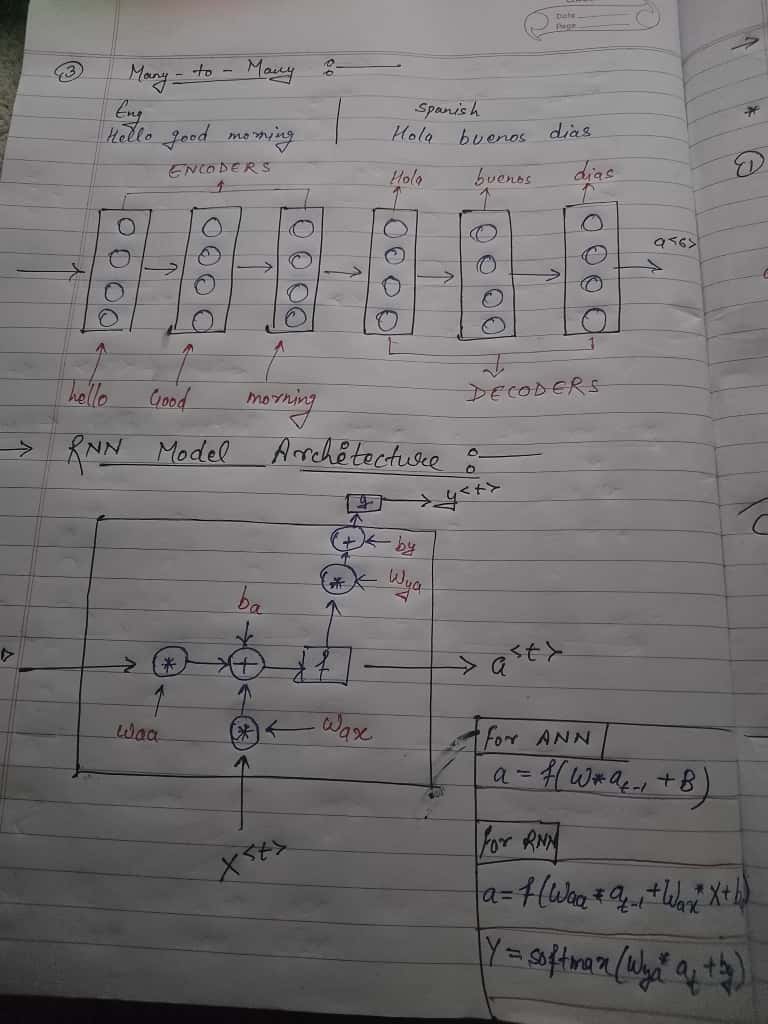 Date
Page
③ Many-to-Many :
Eng | Spanish
Hello good morning | Hola buenos dias
ENCODERS
Hola buenos dias
a<6>
hello Good morning
DECODERS
→ RNN Model Architecture :
g → y<t>
+ ← by
* ← Wya
ba
* → + → f → a<t>
Waa
* ← Wax
X<t>
For ANN
a = f(W*at-1 + B)
For RNN
a = f(Waa * at-1 + Wax * X + b)
Y = softmax(Wya * at + by)
→
*
①